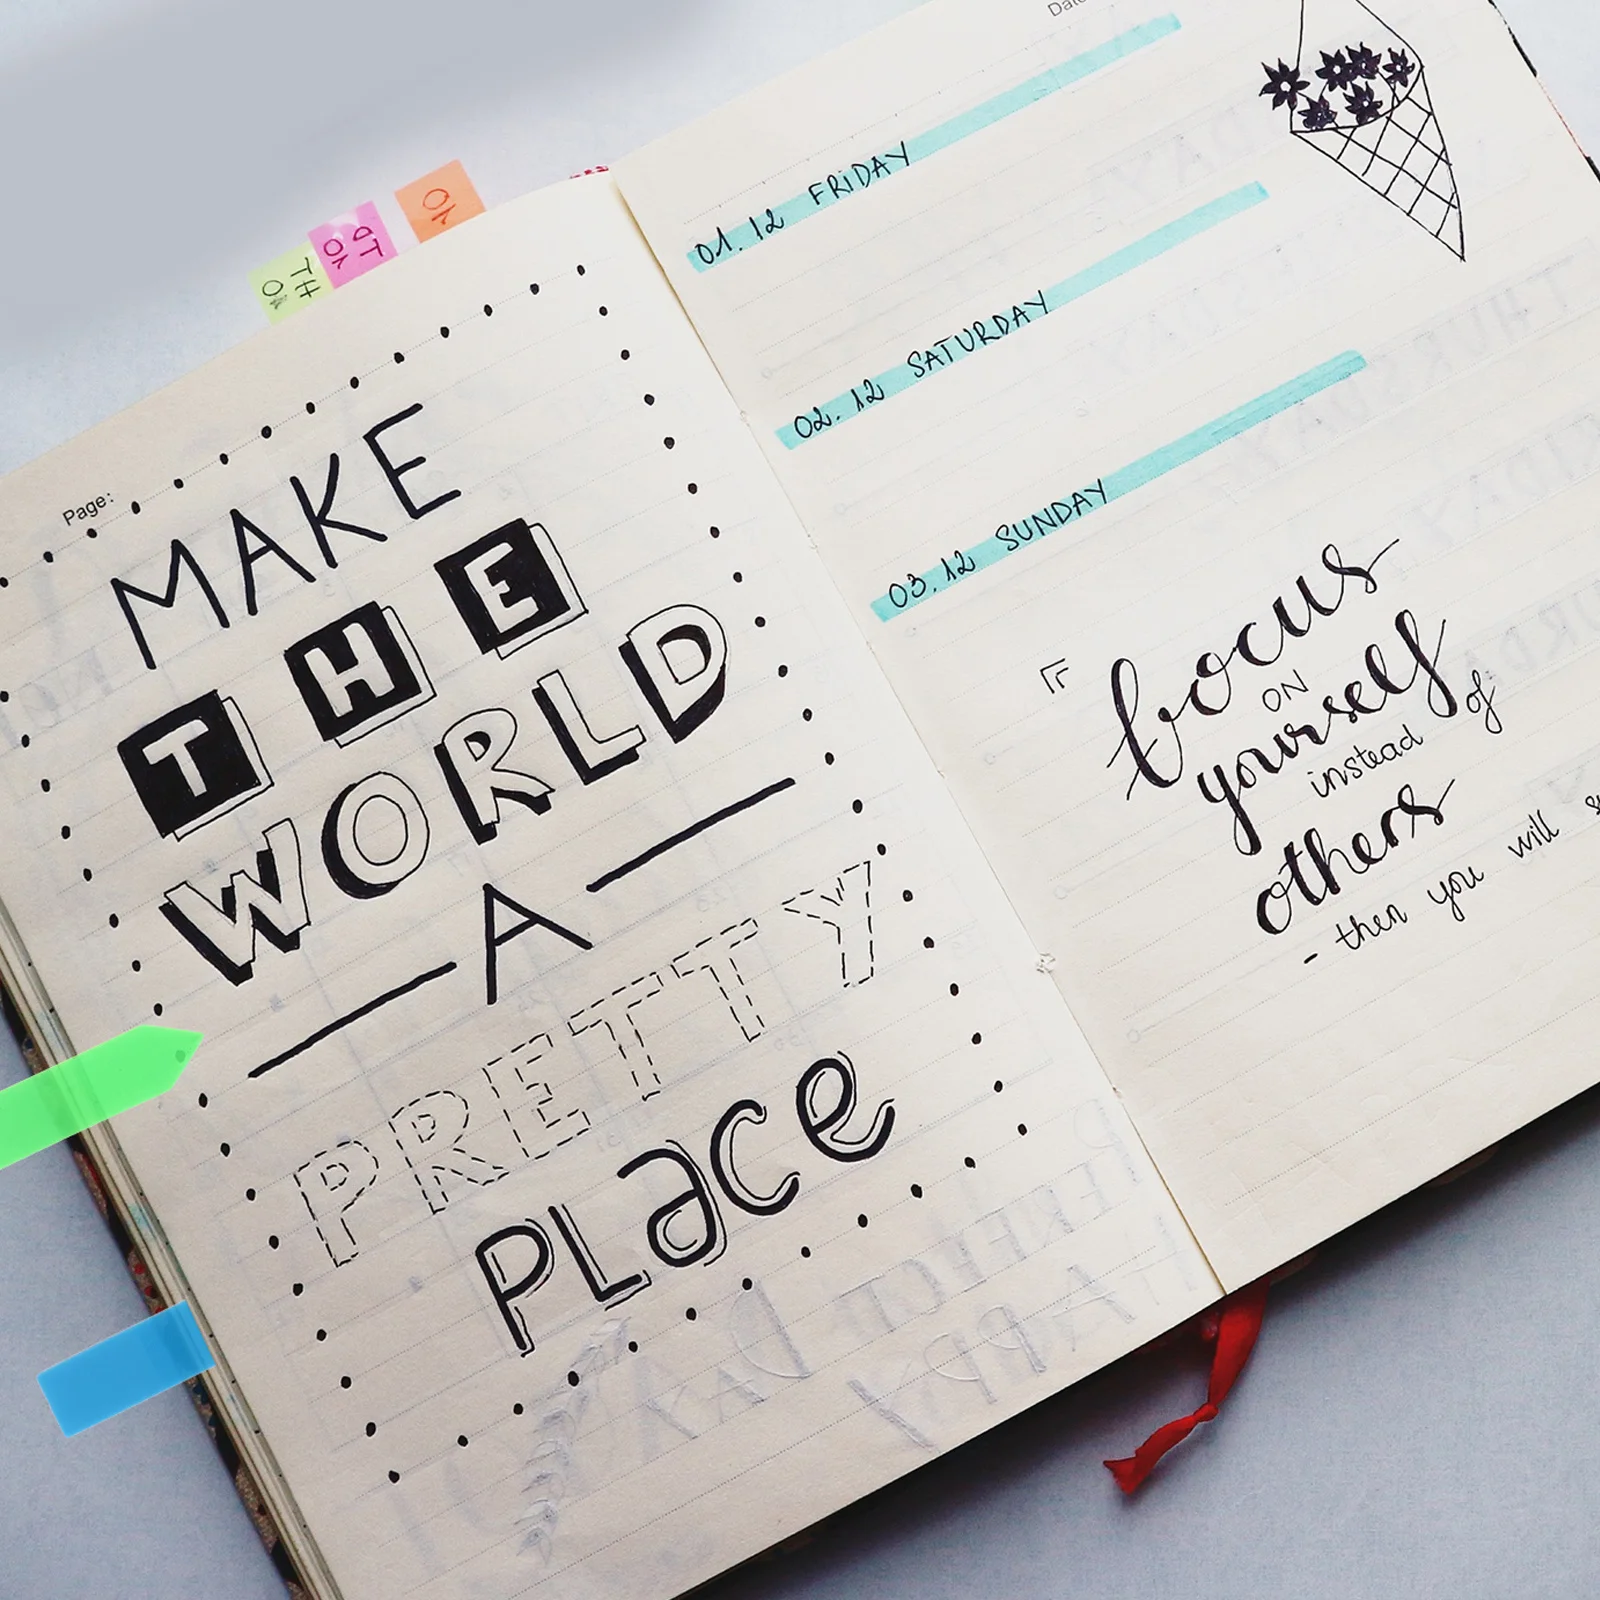 Page:
MAKE
THE
WORLD
A
PRETTY
PLace
Date
01.12 FRIDAY
02.12 SATURDAY
03.12 SUNDAY
focus
ON
yourself
instead of
others
- then you will